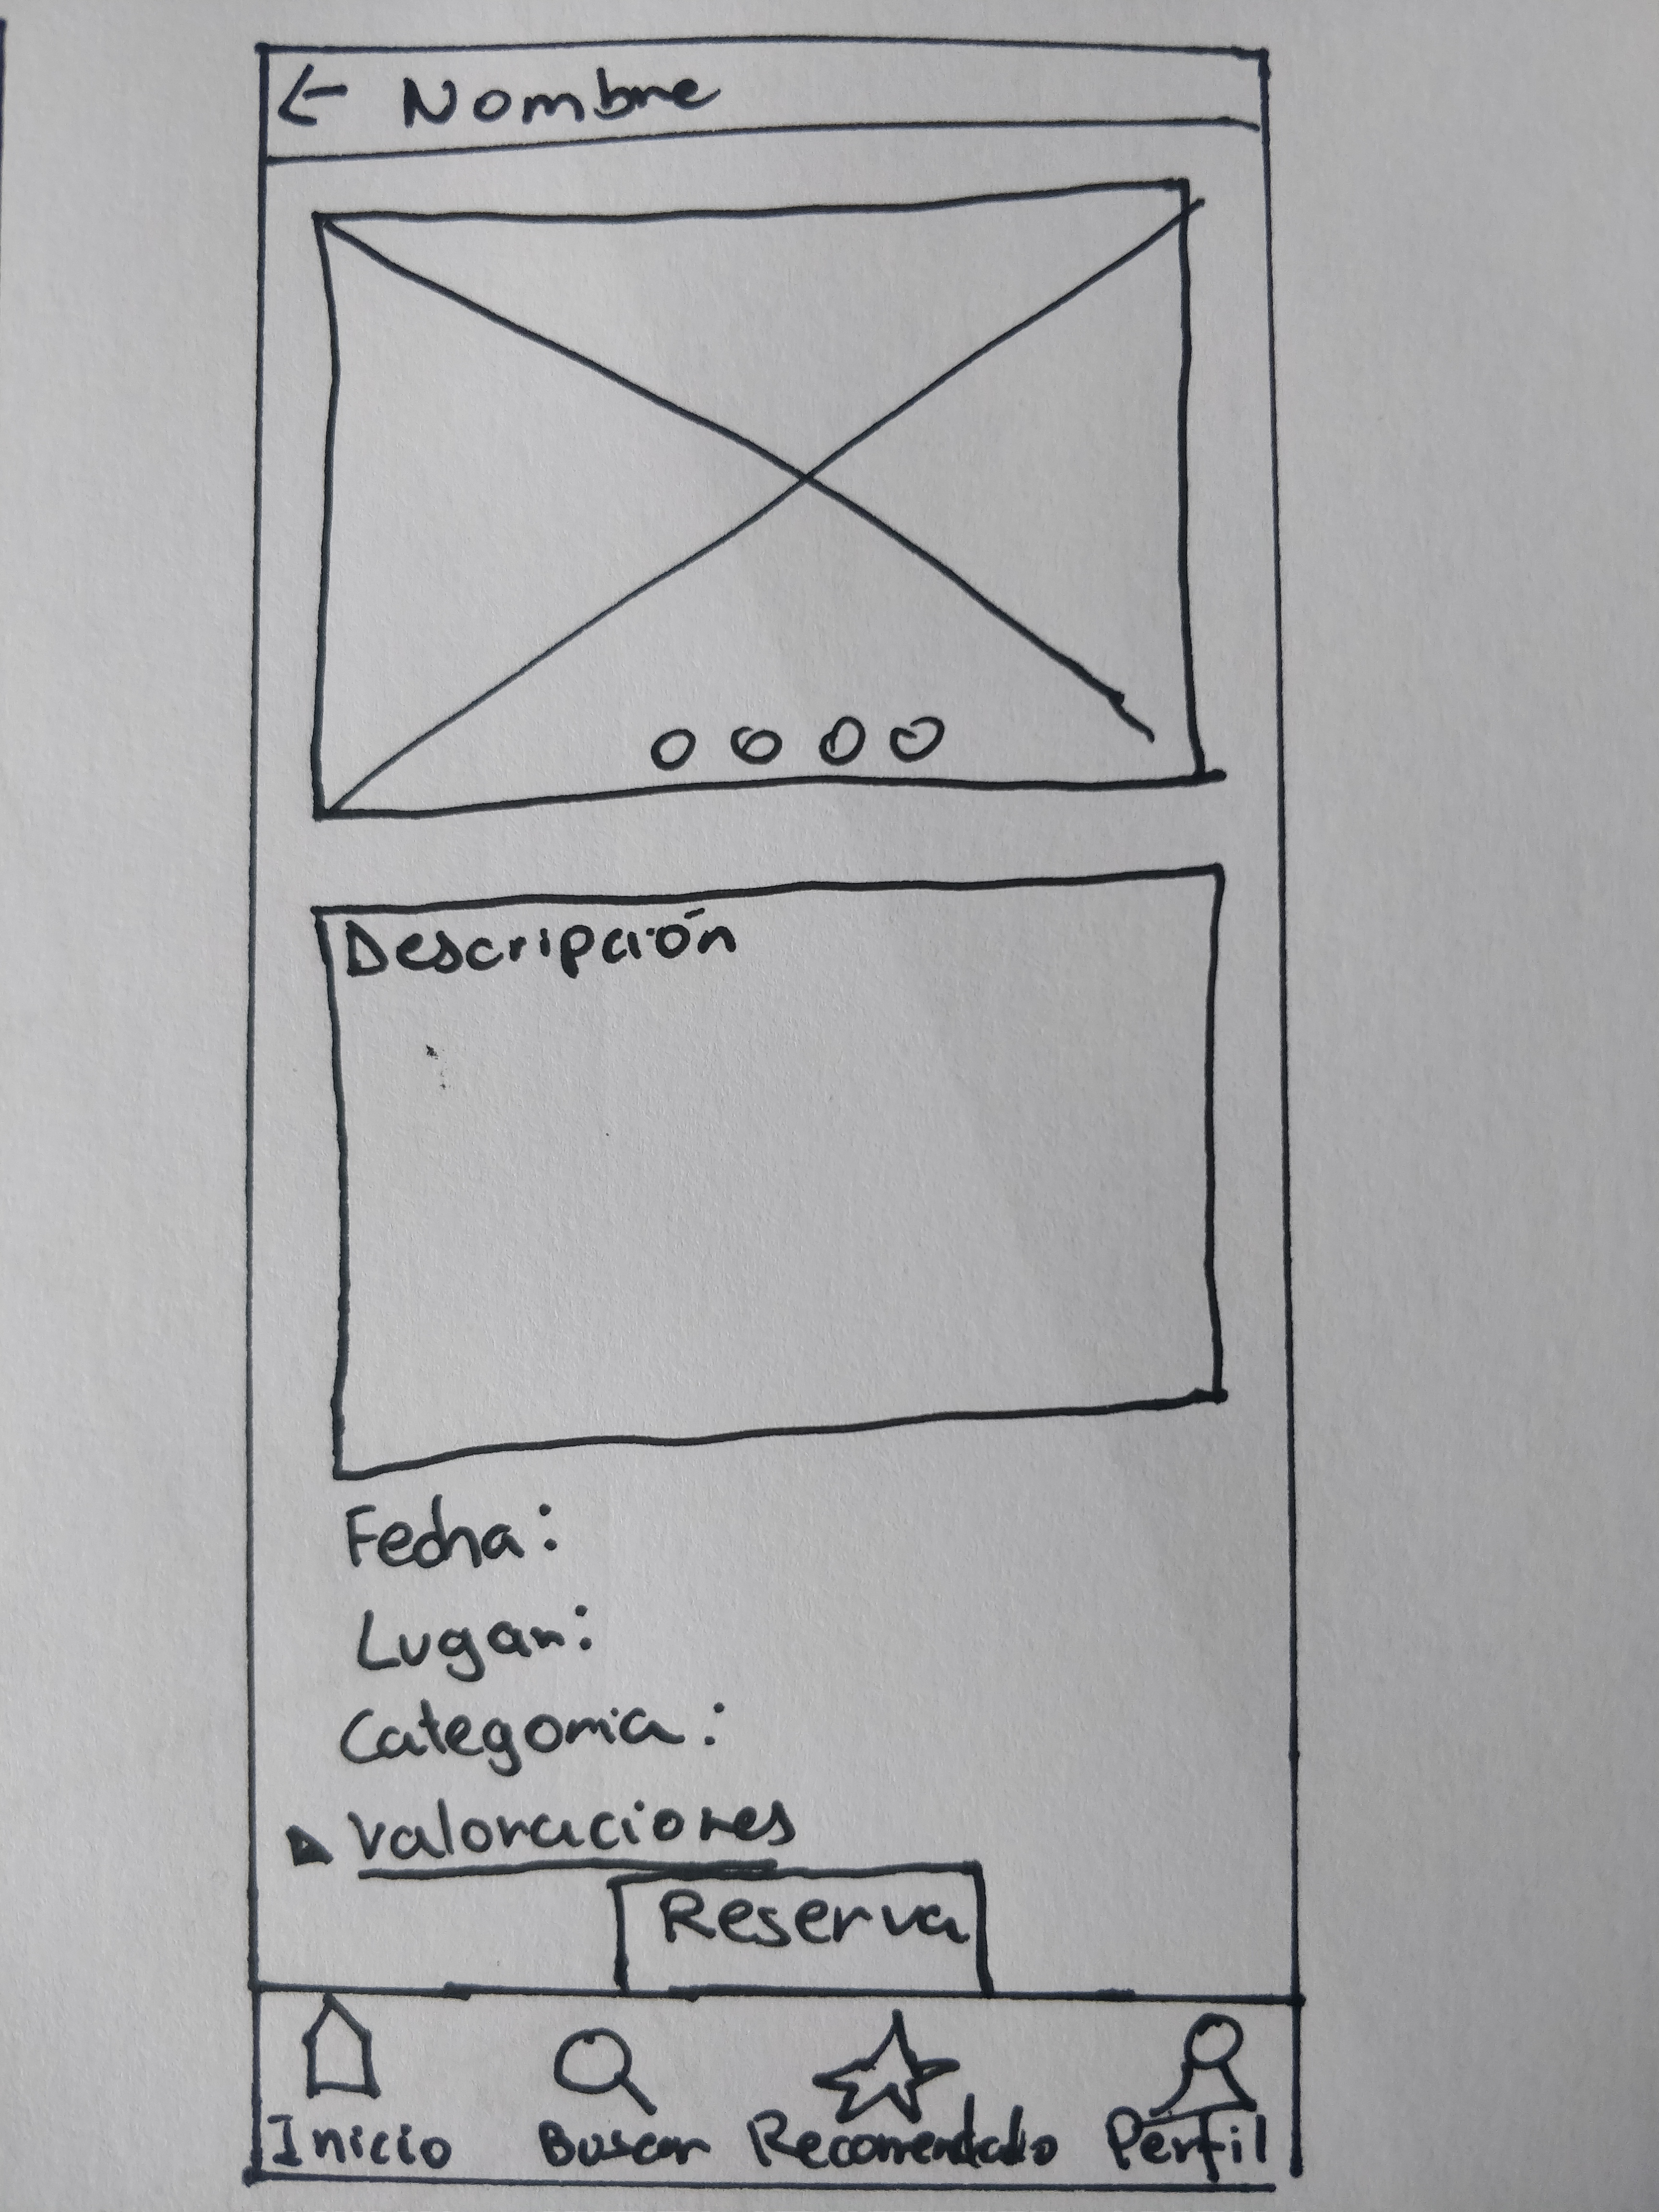 ← Nombre
Descripción
Fecha:
Lugar:
Categoria:
▶ Valoraciones
Reserva
Inicio Buscar Recomendado Perfil